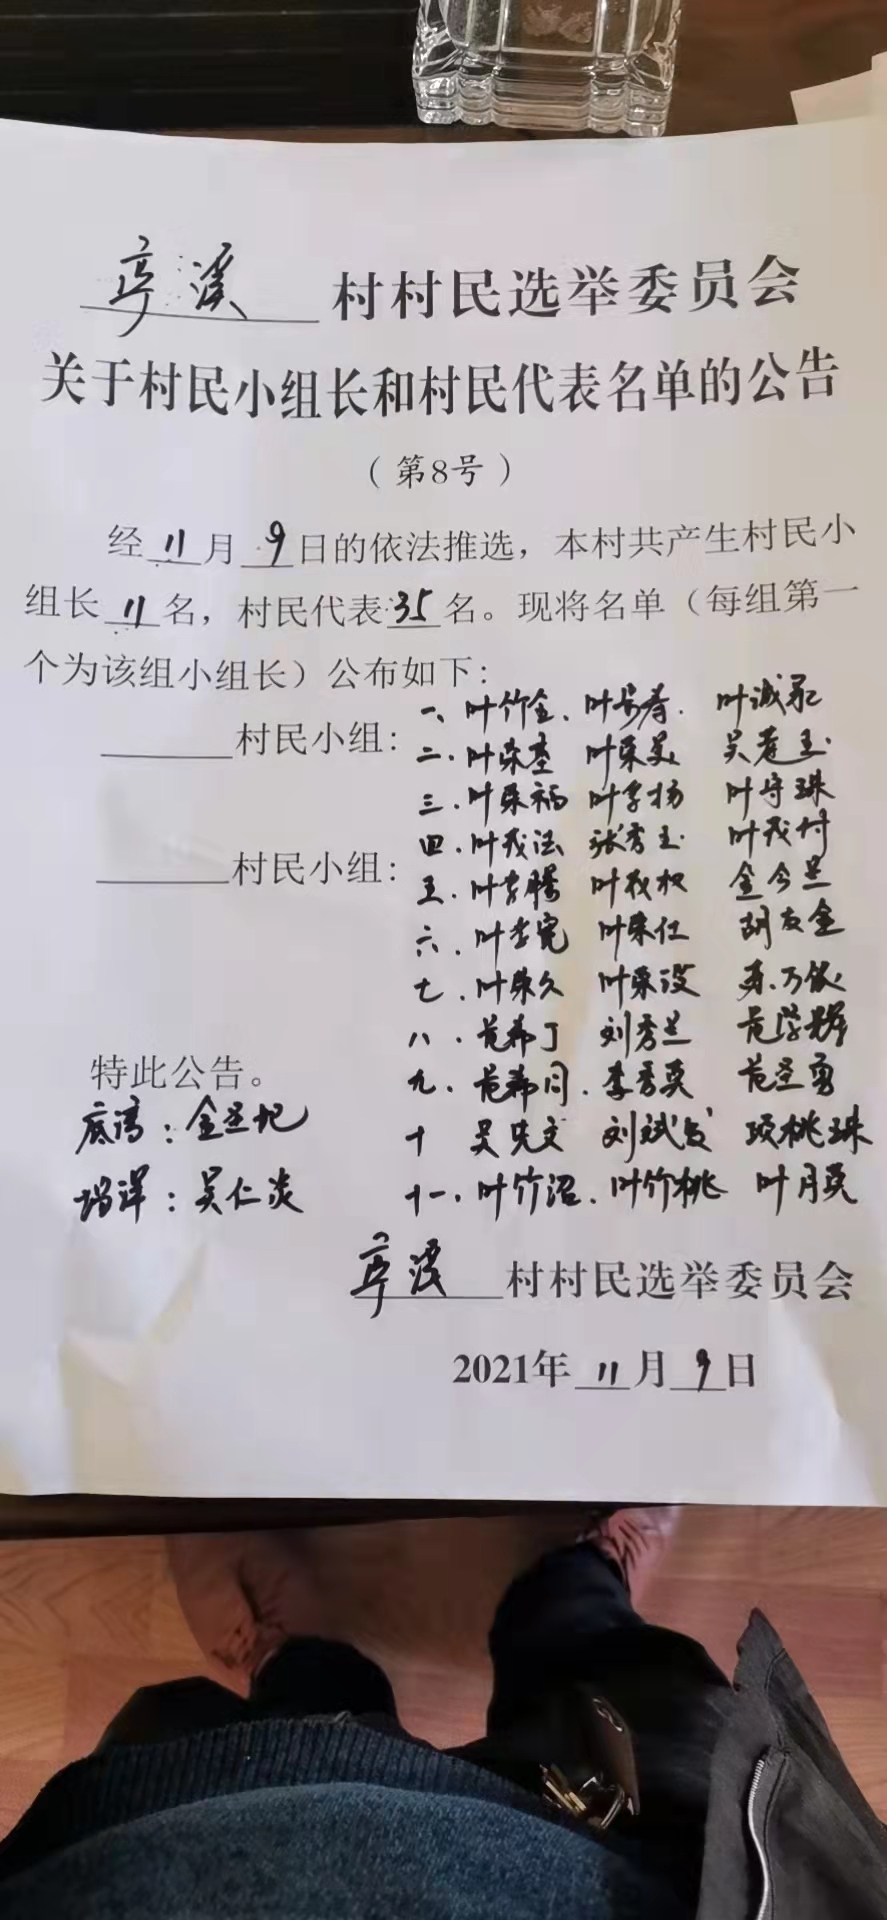 亭溪村村民选举委员会
关于村民小组长和村民代表名单的公告
（第8号）
经11月9日的依法推选，本村共产生村民小
组长11名，村民代表35名。现将名单（每组第一
个为该组小组长）公布如下：
村民小组：
村民小组：
一、叶竹金、叶寿. 叶诚
二.叶荣 叶荣美 吴莲玉
三.叶荣福 叶李杨 叶守珠
四.叶茂法 张秀玉 叶茂村
五.叶李腾 叶茂松 金今兰
六.叶李宽 叶荣仕 胡友金
七.叶荣久 叶荣设 万依
八.范希丁 刘秀兰 范学辉
九.范希同.李秀英 范圣勇
十 吴先文 刘斌 项桃珠
十一.叶竹沼.叶竹桃 叶月英
特此公告。
底湾：金兰
洋：吴仁炎
亭溪村村民选举委员会
2021年11月9日